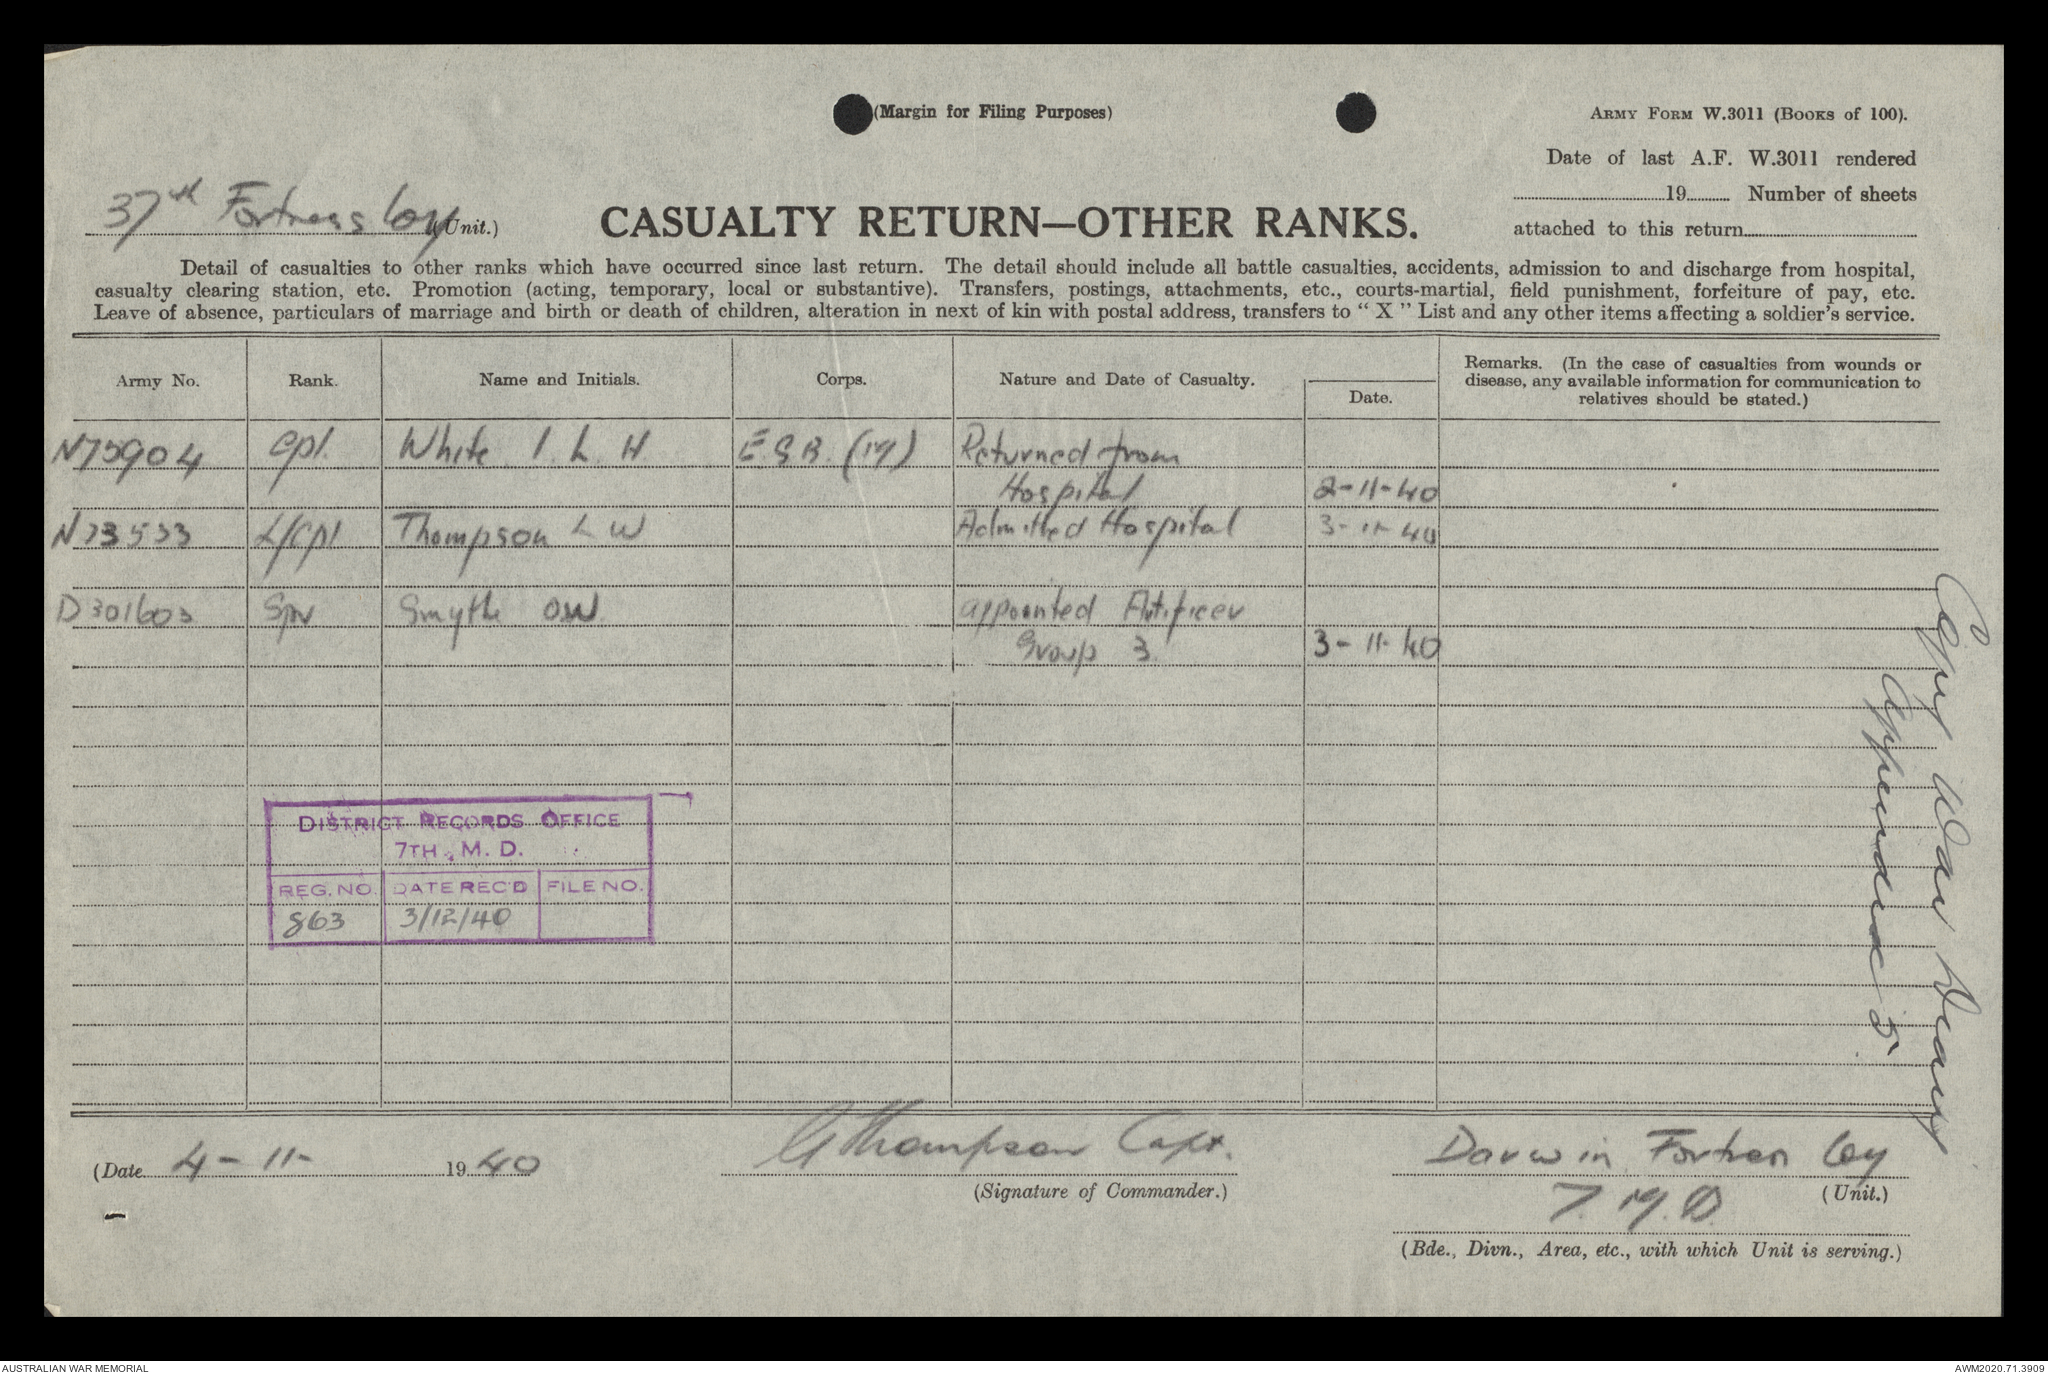 (Margin for Filing Purposes)
ARMY FORM W.3011 (BOOKS of 100).
Date of last A.F. W.3011 rendered
19 Number of sheets
attached to this return
37th Fortress Coy (Unit.)
CASUALTY RETURN—OTHER RANKS.
Detail of casualties to other ranks which have occurred since last return. The detail should include all battle casualties, accidents, admission to and discharge from hospital,
casualty clearing station, etc. Promotion (acting, temporary, local or substantive). Transfers, postings, attachments, etc., courts-martial, field punishment, forfeiture of pay, etc.
Leave of absence, particulars of marriage and birth or death of children, alteration in next of kin with postal address, transfers to “ X ” List and any other items affecting a soldier's service.
Army No. Rank. Name and Initials. Corps. Nature and Date of Casualty. Date.
Remarks. (In the case of casualties from wounds or
disease, any available information for communication to
relatives should be stated.)
N75904 Cpl. White I. L. H. Returned from
Hospital 2-11-40
N73533 L/Cpl Thompson L W Admitted Hospital 3-11-40
D301603 Spr Smythe O.W. appointed Artificer
Group 3. 3-11-40
DISTRICT RECORDS OFFICE
7TH. M. D.
REG. NO. DATE REC'D FILE NO.
863 3/12/40
Copy War Diary
Appendix 5
(Date 4-11- 1940
G Thompson Capt.
(Signature of Commander.)
Darwin Fortress Coy
(Unit.)
7. M. D.
(Bde., Divn., Area, etc., with which Unit is serving.)
AUSTRALIAN WAR MEMORIAL
AWM2020.71.3909